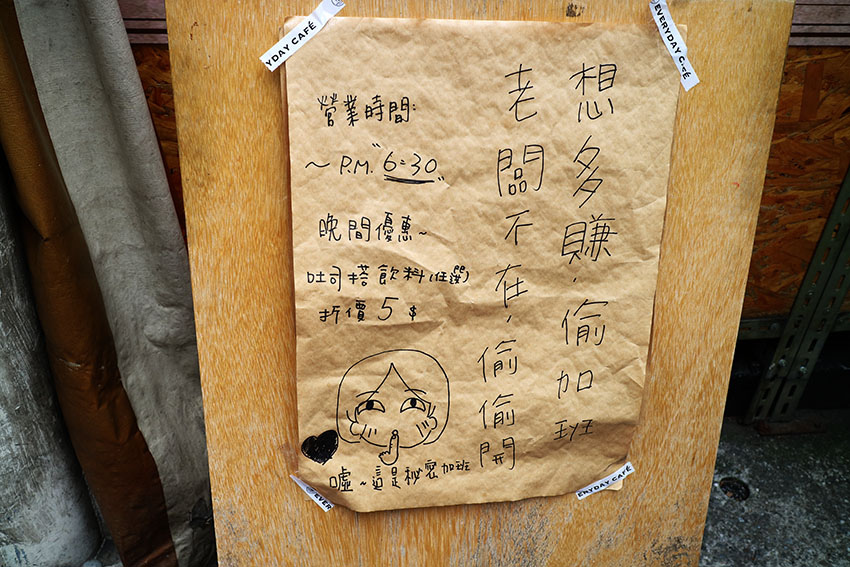 YDAY CAFÉ
EVERYDAY CAFÉ
想多賺,偷加班
老闆不在,偷偷開
營業時間:
~ P.M. "6:30"
晚間優惠~
吐司搭飲料(任選)
折價 5 $
噓~這是秘密加班
EVER
ERYDAY CAFÉ